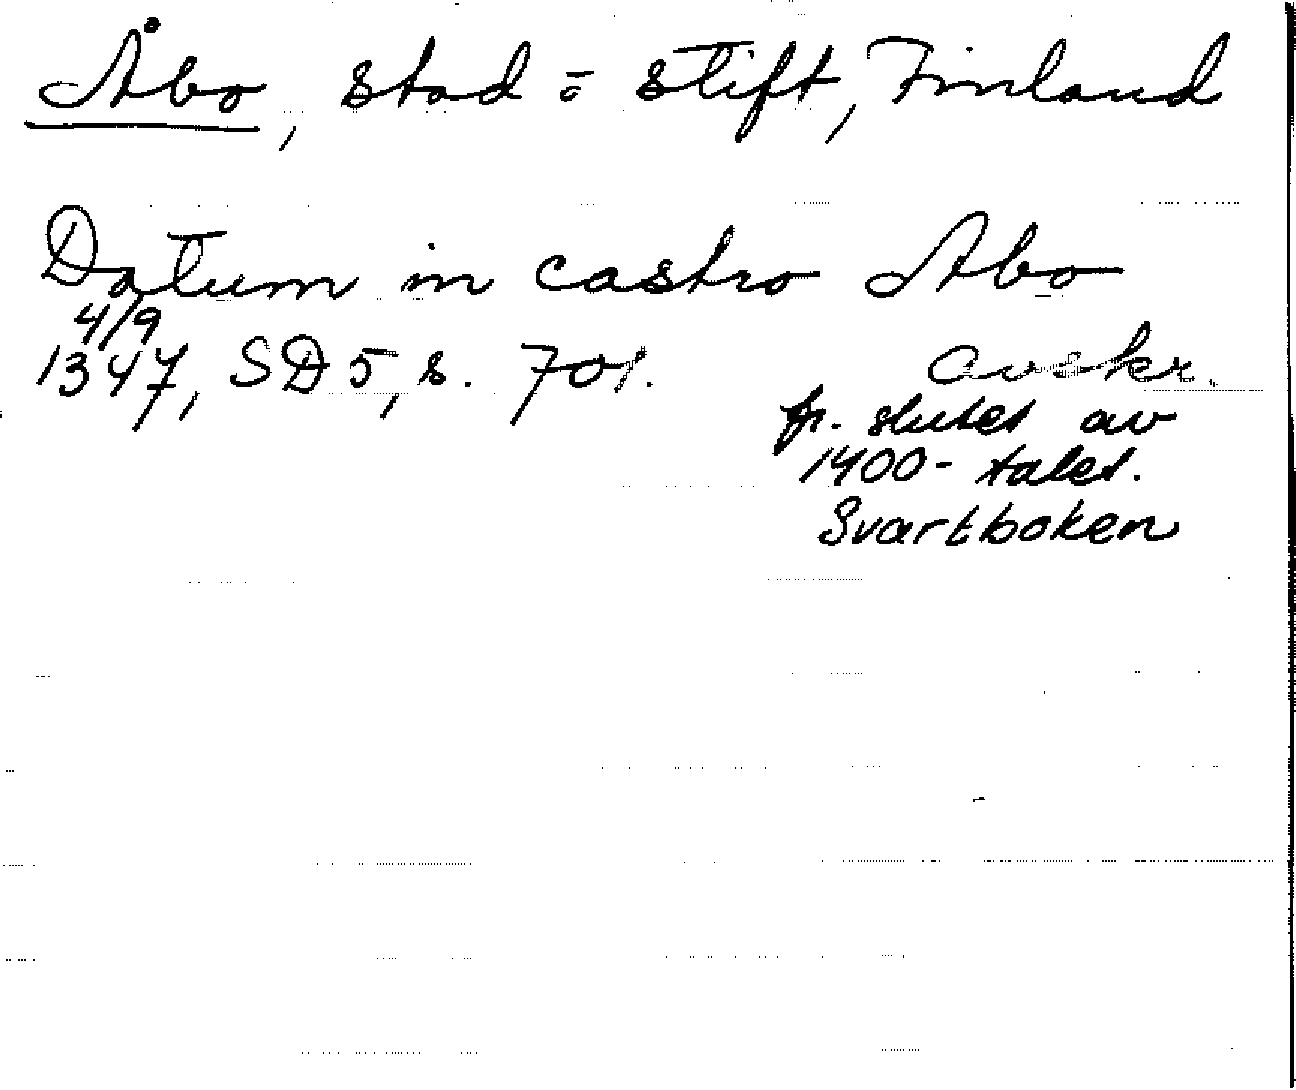 Åbo, stad o stift, Finland
Datum in castro Abo
4/9
1347, SD 5, s. 701. avskr.
fr. slutet av
1400-talet.
Svartboken